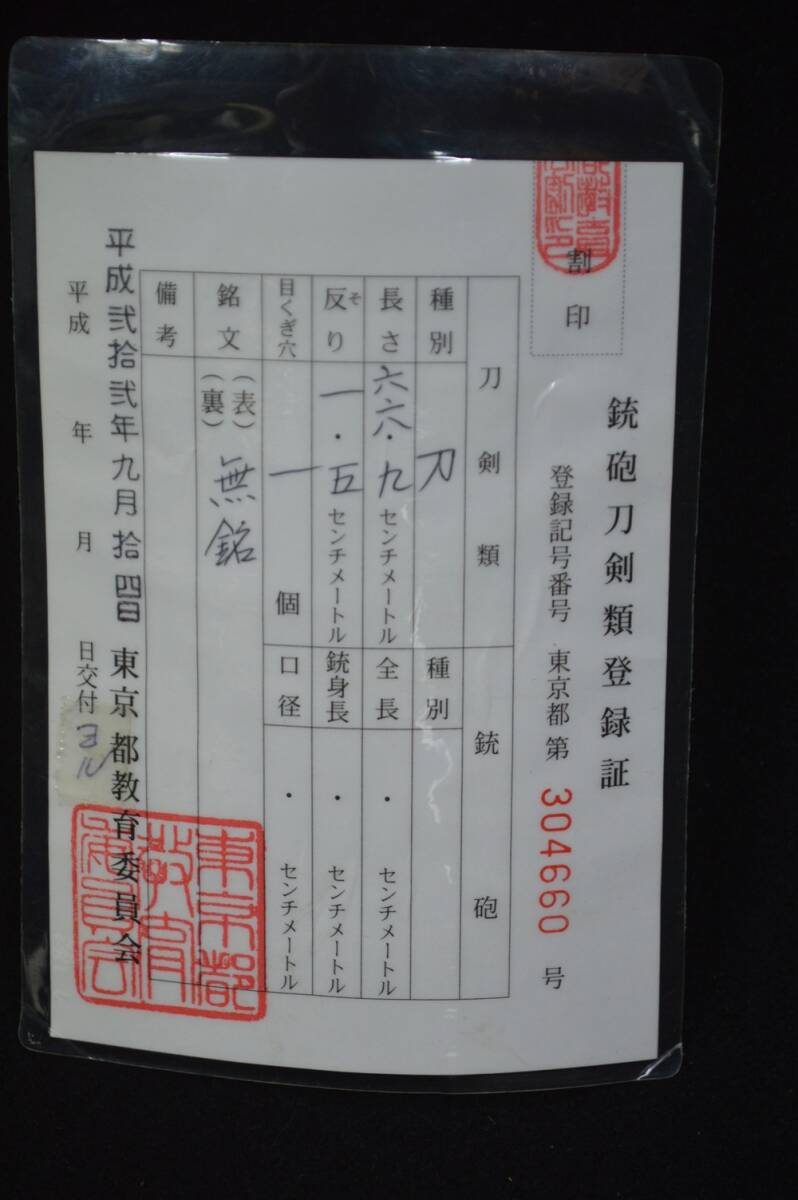 割印
銃砲刀剣類登録証
登録記号番号 東京都 第 304660 号
刀剣類
銃砲
種別 刀
種別
長さ 六六・九 センチメートル
全長 ・ センチメートル
反り そ 一・五 センチメートル
銃身長 ・ センチメートル
目くぎ穴 一 個
口径 ・ センチメートル
銘文 (表) 無銘
(裏)
備考
平成弐拾弐年九月拾四日 東京都教育委員会
平成 年 月 日交付
東京都
教育
委員会